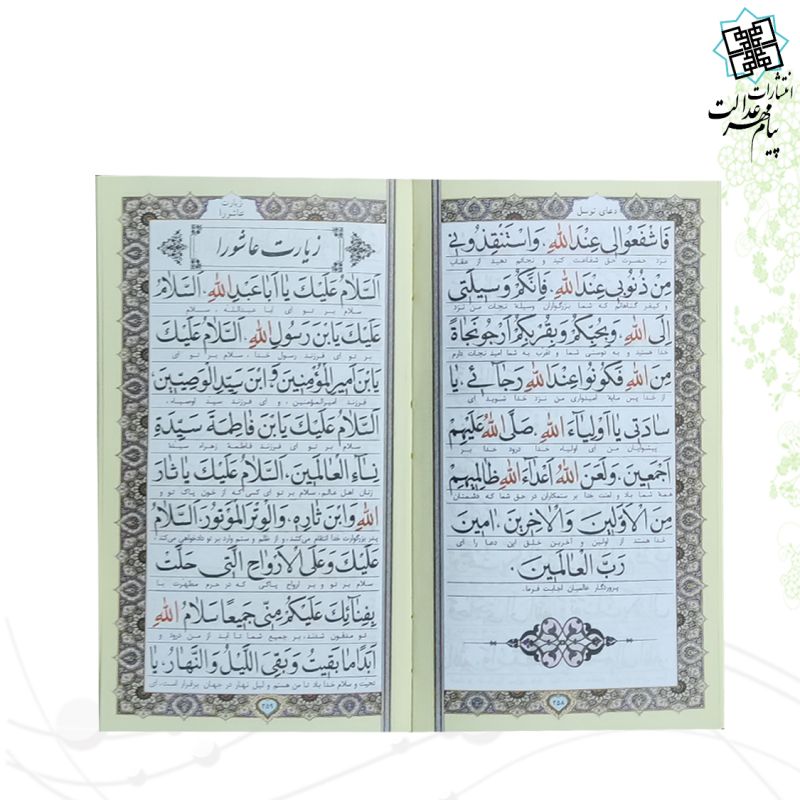 انتشارات
پیام مهر عدالت
دعای توسل
فَاشْفَعُوا لِی عِنْدَ اللّٰهِ، وَاسْتَنْقِذُونِی
نزد حضرت حق شفاعت کنید و نجاتم دهید از عقاب
مِنْ ذُنُوبِی عِنْدَ اللّٰهِ، فَاِنَّکُمْ وَسِیلَتِی
و کیفر گناهانی که شما بزرگواران وسیله نجات من نزد
اِلَی اللّٰهِ، وَبِحُبِّکُمْ وَبِقُرْبِکُمْ اَرْجُو نَجَاةً
خدا هستید و به دوستی شما و تقرب به شما امید نجات دارم
مِنَ اللّٰهِ فَکُونُوا عِنْدَ اللّٰهِ رَجَائِی، یَا
از خدا پس مایه امیدواری من نزد خدا شوید ای
سَادَتِی یَا اَوْلِیَاءَ اللّٰهِ، صَلَّی اللّٰهُ عَلَیْهِمْ
پیشوایان من ای اولیاء خدا درود خدا بر
اَجْمَعِینَ، وَلَعَنَ اللّٰهُ اَعْدَاءَ اللّٰهِ ظَالِمِیهِمْ
همه شما باد و لعنت خدا بر ستمکاران در حق شما که دشمنان
مِنَ الْاَوَّلِینَ وَالْاٰخِرِینَ، اٰمِینَ
خدا هستند از اولین و آخرین خلق این دعا را ای
رَبَّ الْعَالَمِینَ.
پروردگار عالمیان اجابت فرما.
۲۵۸
زیارت عاشورا
زیارت عاشورا
اَلسَّلَامُ عَلَیْکَ یَا اَبَا عَبْدِ اللّٰهِ، اَلسَّلَامُ
سلام بر تو ای ابا عبدالله، سلام
عَلَیْکَ یَابْنَ رَسُولِ اللّٰهِ، اَلسَّلَامُ عَلَیْکَ
بر تو ای فرزند رسول خدا، سلام بر تو ای
یَابْنَ اَمِیرِ الْمُؤْمِنِینَ وَابْنَ سَیِّدِ الْوَصِیِّینَ،
فرزند امیرالمؤمنین، و ای فرزند سید اوصیاء،
اَلسَّلَامُ عَلَیْکَ یَابْنَ فَاطِمَةَ سَیِّدَةِ
سلام بر تو ای فرزند فاطمهٔ زهراء سیدهٔ
نِسَاءِ الْعَالَمِینَ، اَلسَّلَامُ عَلَیْکَ یَا ثَارَ
زنان اهل عالم، سلام بر تو ای کسی که از خون پاک تو و
اللّٰهِ وَابْنَ ثَارِهِ، وَالْوِتْرَ الْمَوْتُورَ، اَلسَّلَامُ
پدر بزرگوارت خدا انتقام می‌کشد، و از ظلم و ستم وارد بر تو دادخواهی می‌کند،
عَلَیْکَ وَعَلَی الْاَرْوَاحِ الَّتِی حَلَّتْ
سلام بر تو و بر ارواح پاکی که در حرم مطهرت با
بِفِنَائِکَ عَلَیْکُمْ مِنِّی جَمِیعًا سَلَامُ اللّٰهِ
تو مدفون شدند، بر جمیع شما تا ابد از من درود و
اَبَدًا مَا بَقِیتُ وَبَقِیَ اللَّیْلُ وَالنَّهَارُ، یَا
تحیت و سلام خدا باد تا من هستم و لیل نهار در جهان برقرار است، ای
۲۵۹